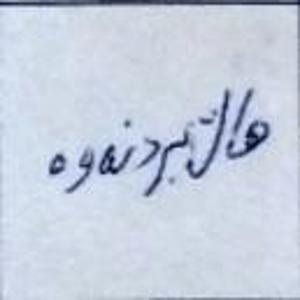 هاڵبردنەوە